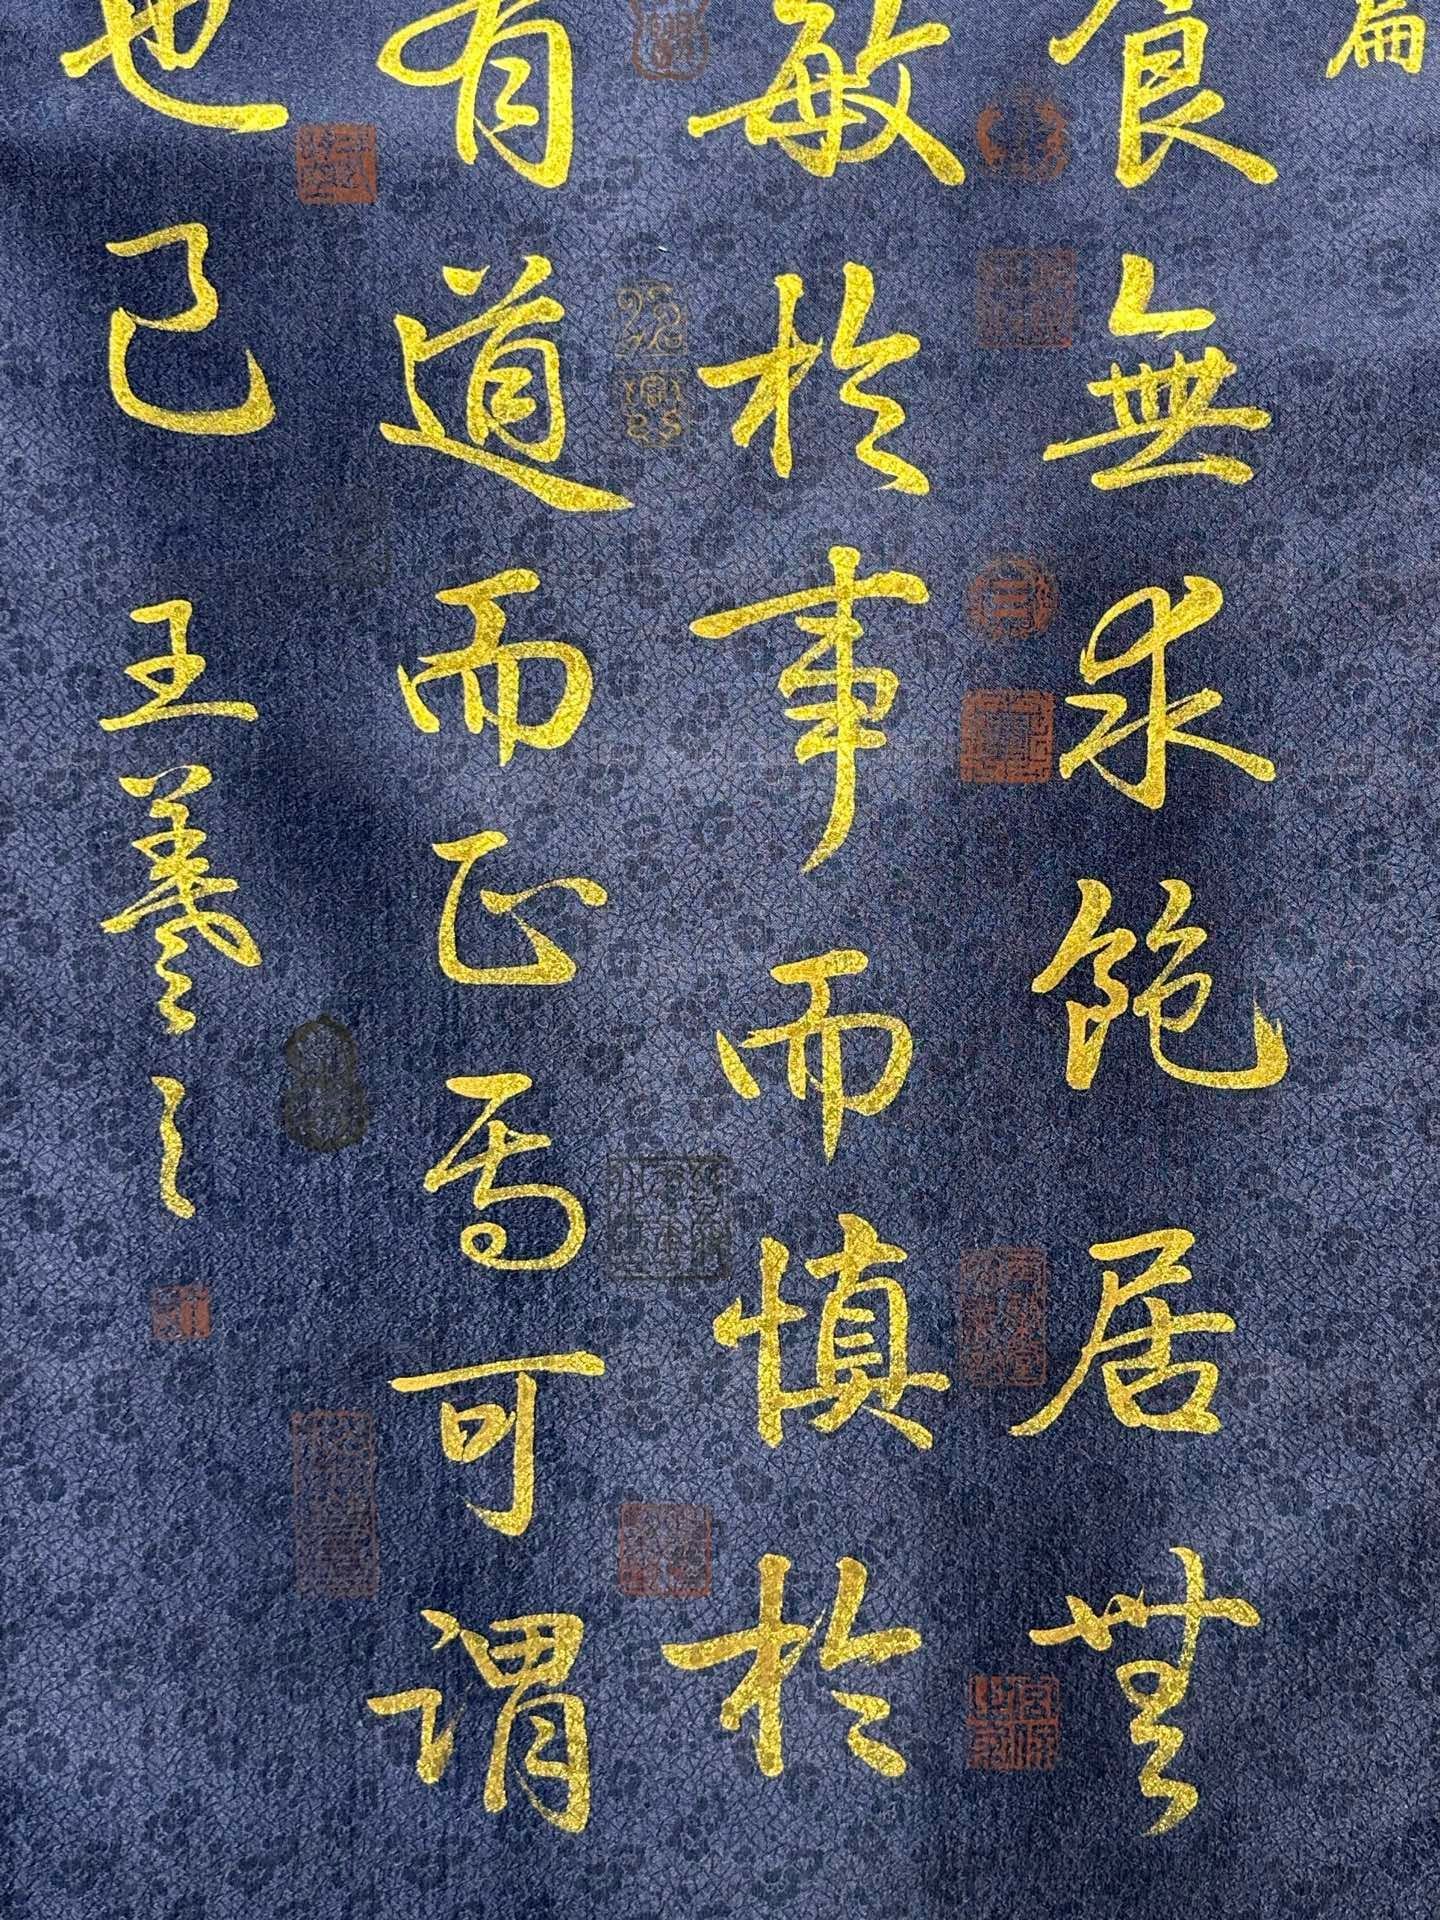 篇
食無求飽居無
敏於事而慎於
有道而正焉可謂
也已
王羲之